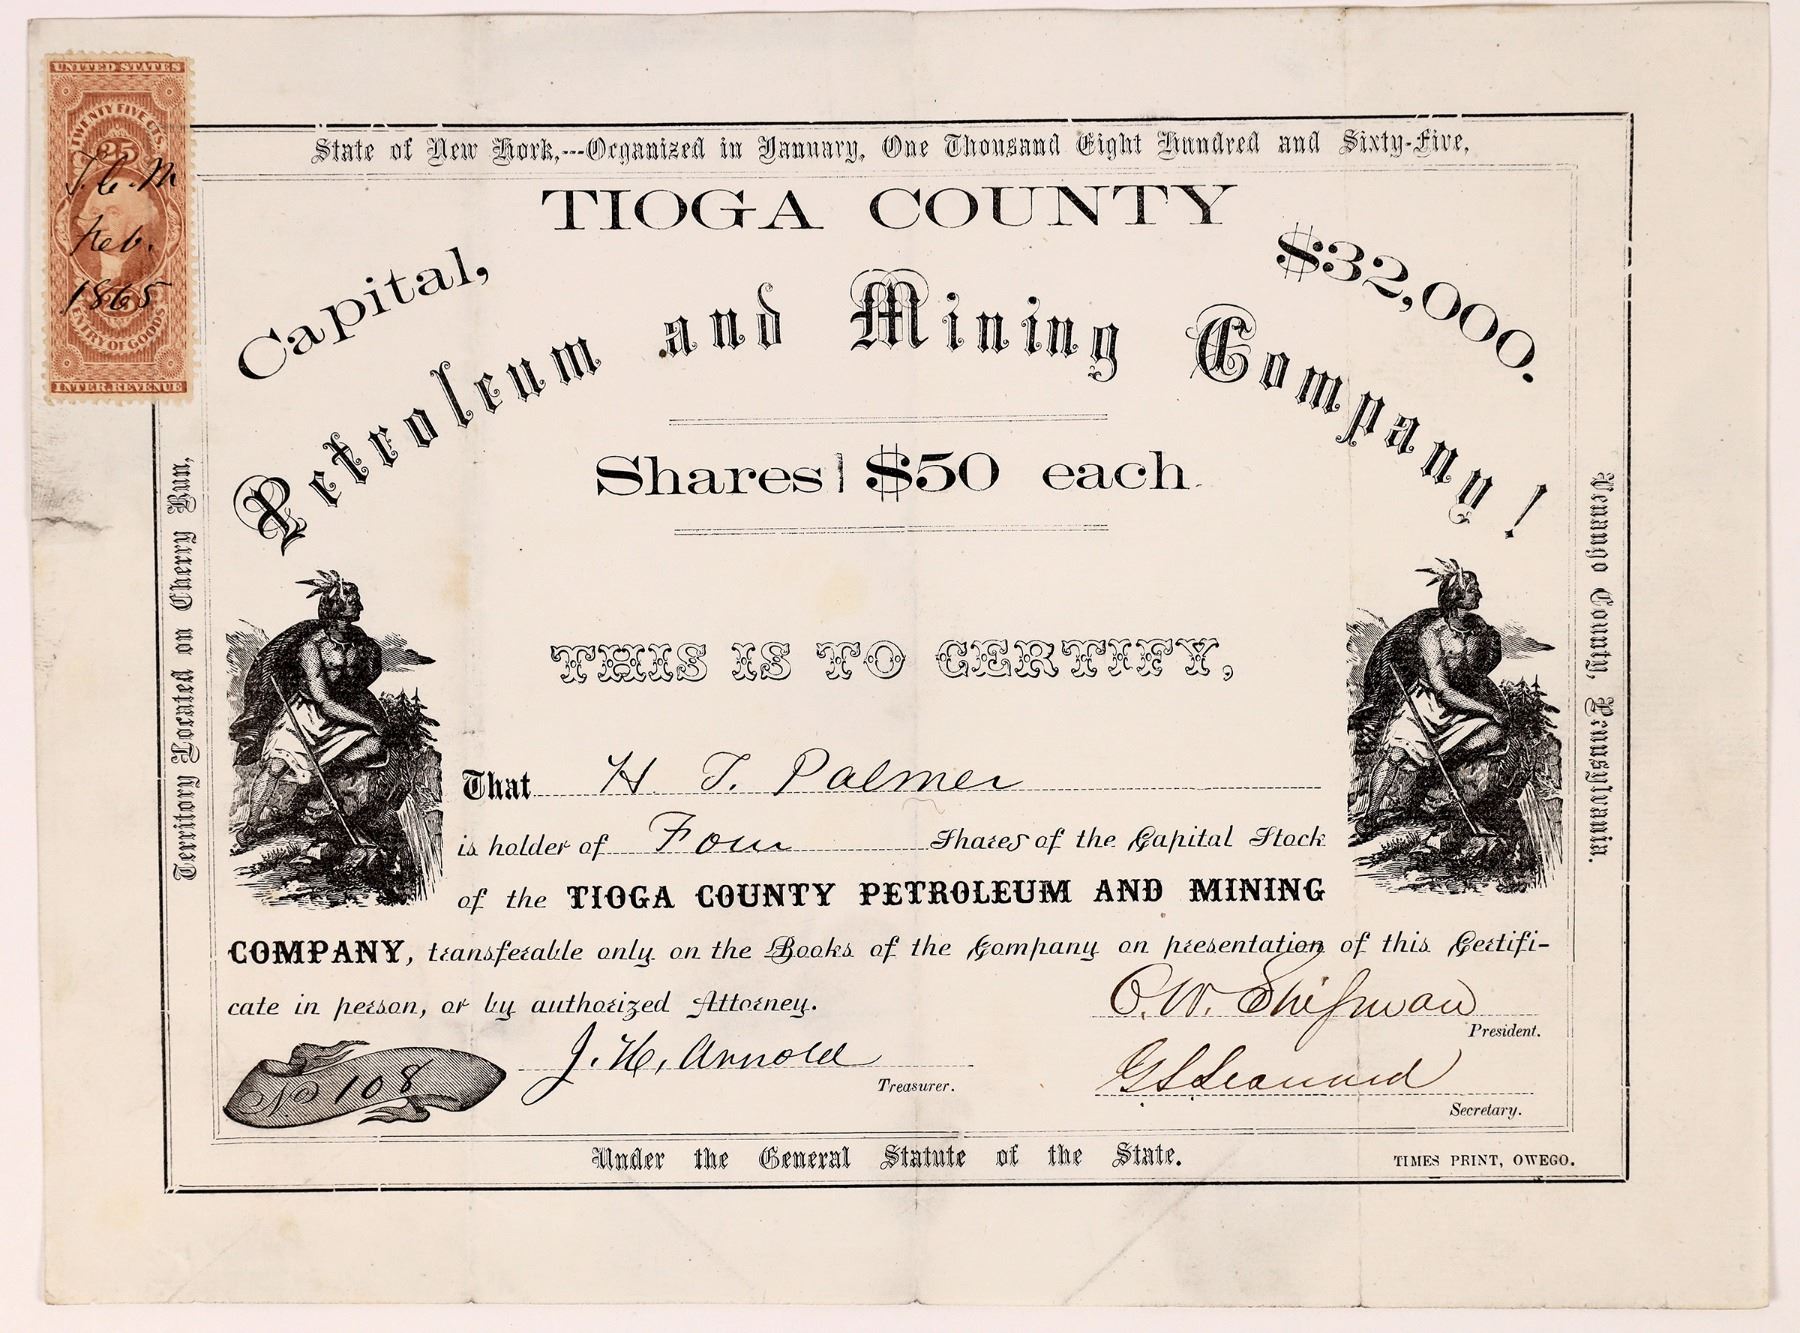 UNITED STATES
TWENTY FIVE CTS.
25
J. C. M
Feb.
1865
ENTRY OF GOODS
INTER. REVENUE
State of New York,---Organized in January, One Thousand Eight Hundred and Sixty-Five,
TIOGA COUNTY
Capital, $32,000.
Petroleum and Mining Company!
Shares $50 each
Territory Located on Cherry Run,
Venango County, Pennsylvania.
THIS IS TO CERTIFY,
That H. T. Palmer
is holder of Four Shares of the Capital Stock
of the TIOGA COUNTY PETROLEUM AND MINING
COMPANY, transferable only on the Books of the Company on presentation of this Certifi-
cate in person, or by authorized Attorney.
O. W. Shipman
President.
J. H. Arnold
Treasurer.
G S Leonard
Secretary.
No 108
Under the General Statute of the State.
TIMES PRINT, OWEGO.